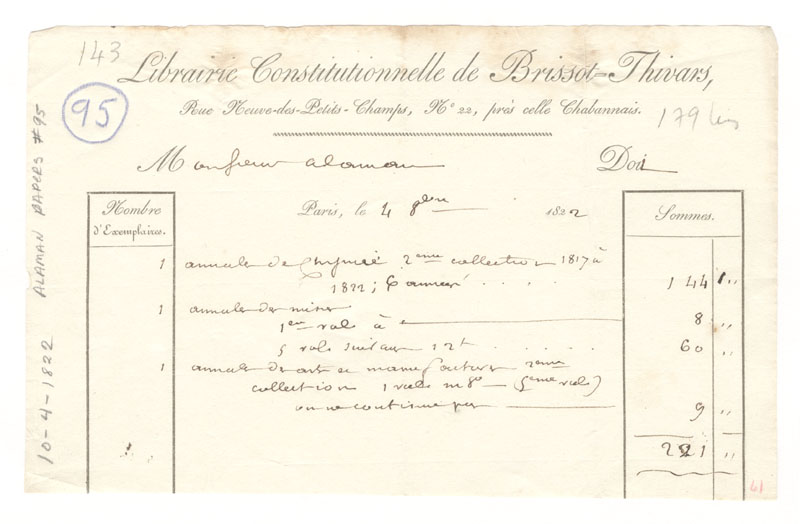 143
Librairie Constitutionnelle de Brissot-Thivars,
95
Rue Neuve-des-Petits-Champs, N.° 22, près celle Chabannais.
179 bis
Monsieur alaman Doit
Paris, le 4 8bre 1822
Nombre d'Exemplaires.
Sommes.
1 annales de chymie 2eme collection 1817 à
1822; 6 années 144 "
1 annales des mines
1er vol. à 8 "
5 vols suivans 12f 60 "
1 annales des arts et manufactures 2eme
collection 1 vol. in 8° (5eme vol.)
on ne continue pas 9 "
221 "
61
10-4-1822 ALAMAN PAPERS #95